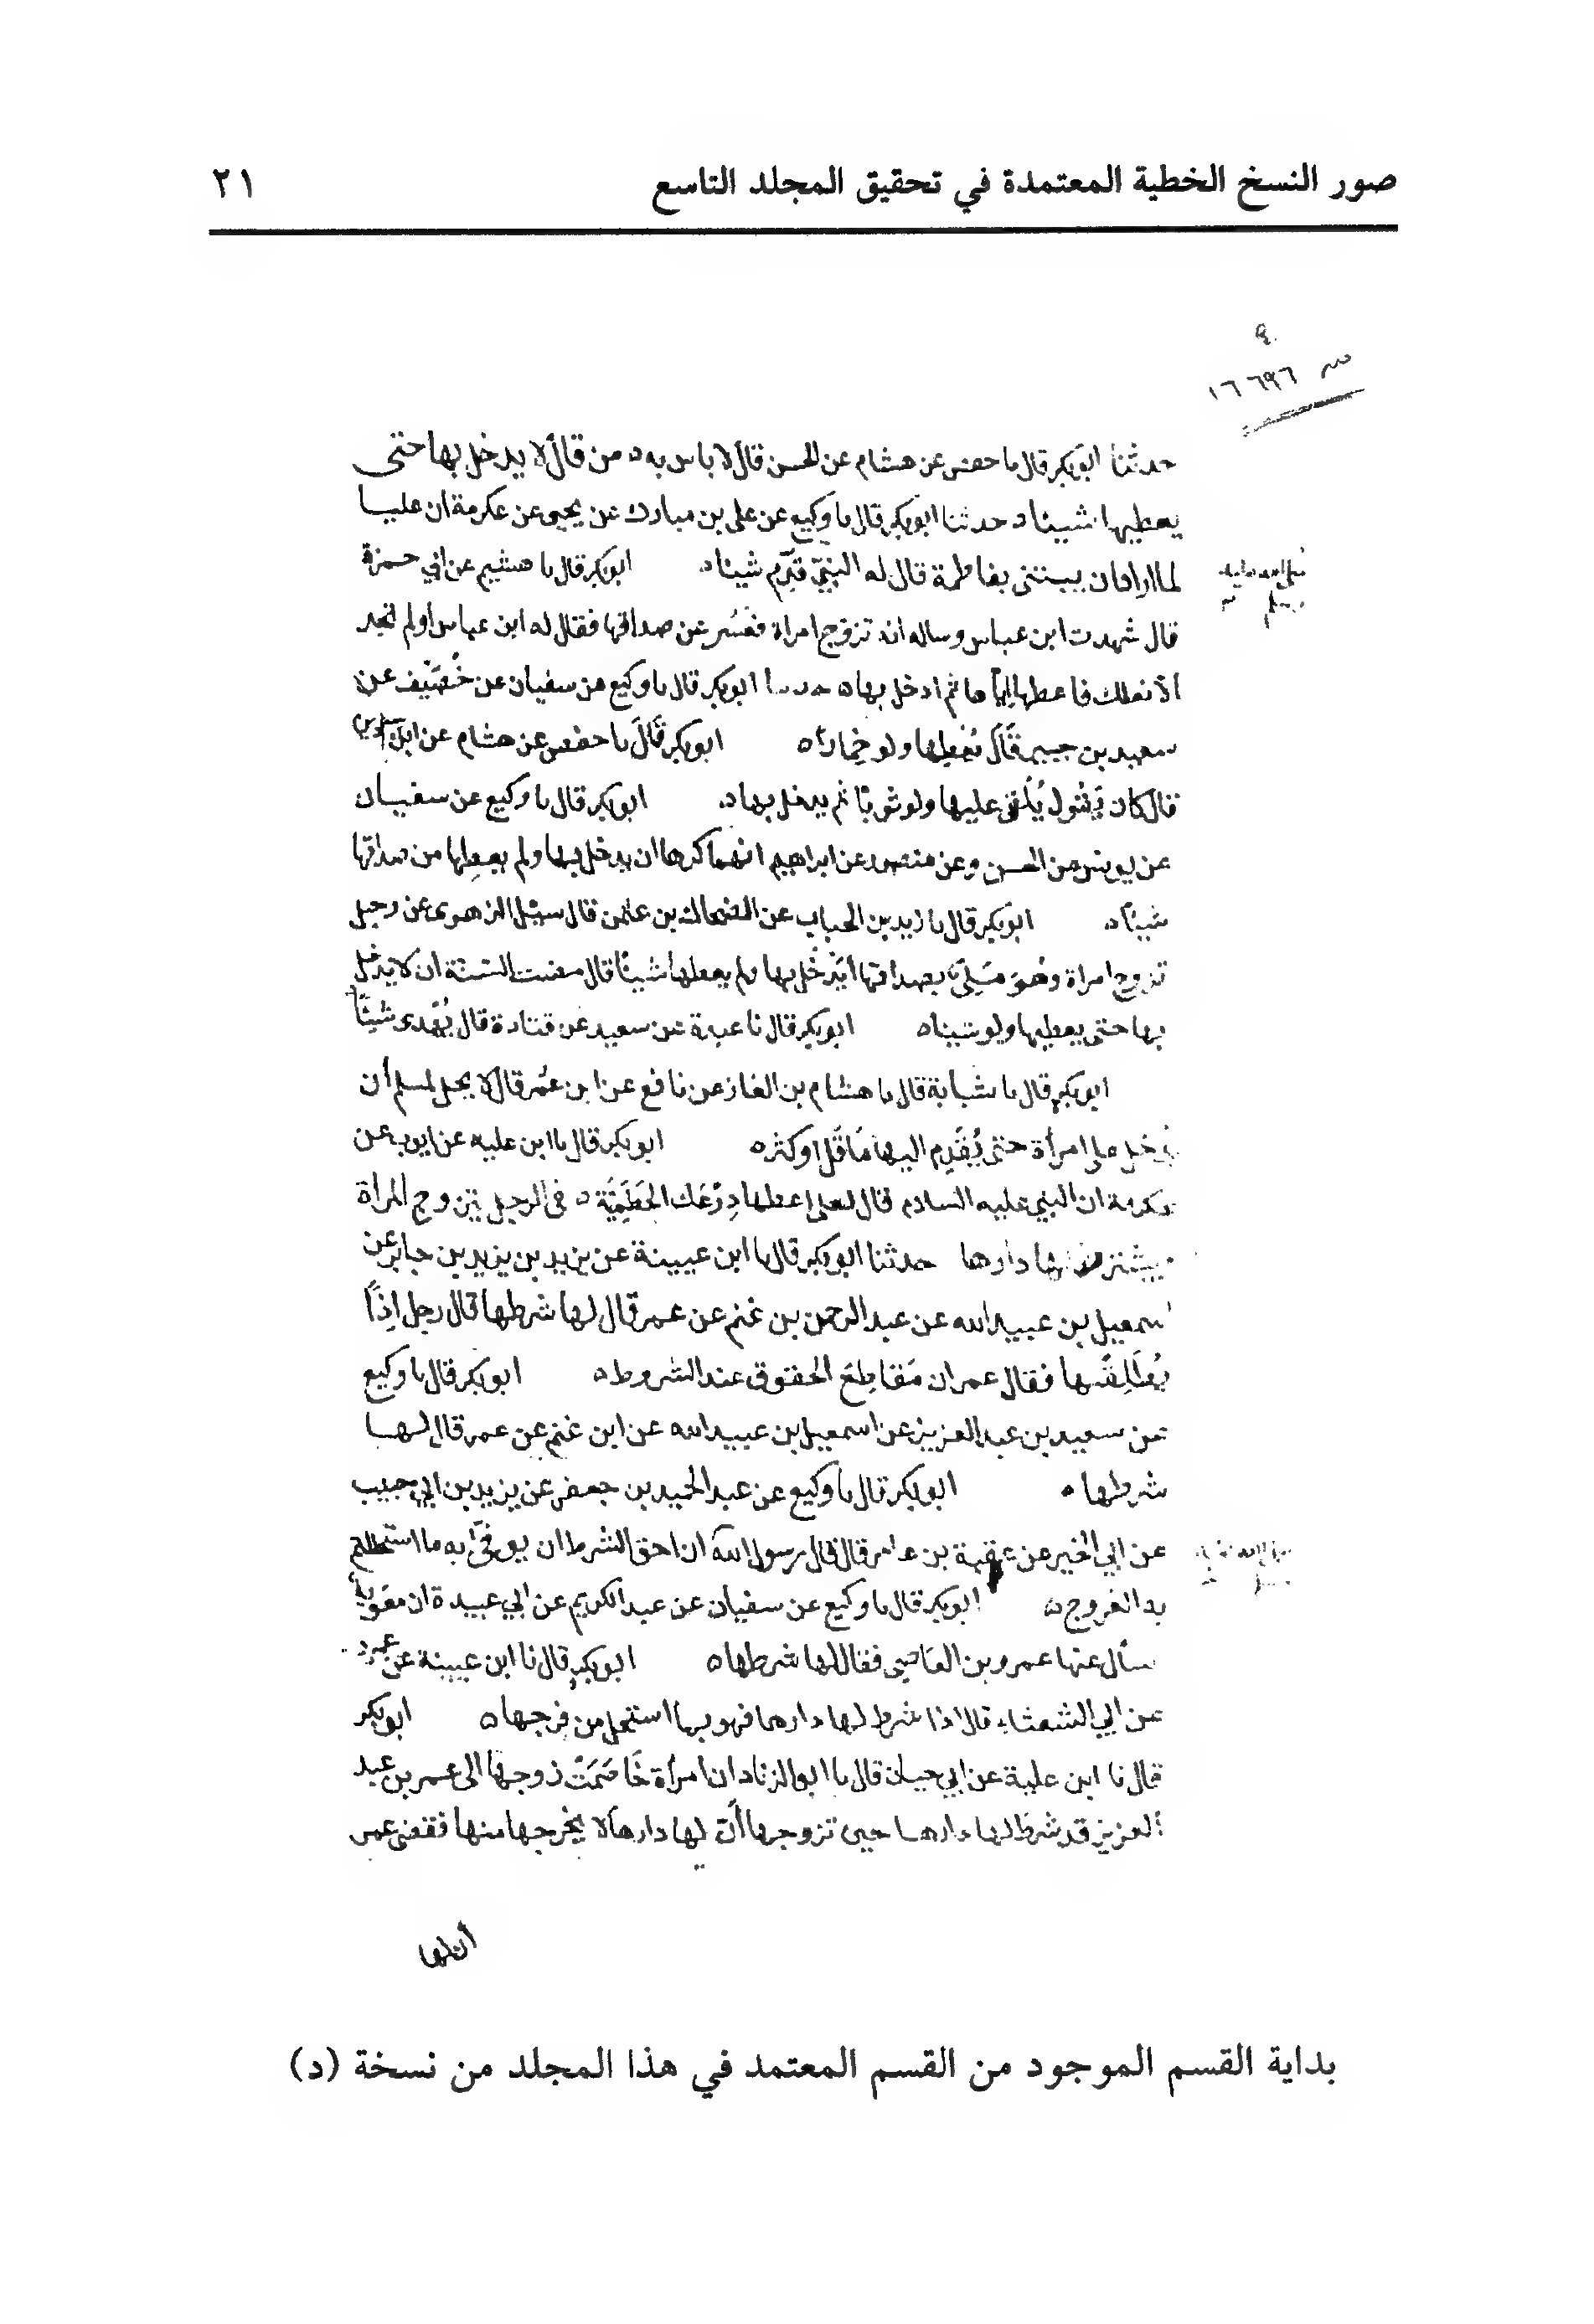 صور النسخ الخطية المعتمدة في تحقيق المجلد التاسع ٢١
١٦٦٩٦
حدثنا ابو بكر قال نا حفص عن هشام عن الحسن قال لا باس به ه من قال لا يدخل بها حتى
يعطيها شيئا ه حدثنا ابو بكر قال نا وكيع عن علي بن مبارك عن يحيى عن عكرمة ان عليا
لما اراد ان يبتني بفاطمة قال له النبي قدم شيئا ه ابو بكر قال نا هشيم عن ابي حمزة
صلى الله عليه
وسلم
قال شهدت ابن عباس وساله انه تزوج امراة فعسر عن صداقها فقال له ابن عباس اولم تجد
الا نعلك فاعطها اياها ثم ادخل بها ه حدثنا ابو بكر قال نا وكيع عن سفيان عن خصيف عن
سعيد بن جبير قال يعطيها ولو خمارا ه ابو بكر قال نا حفص عن هشام عن ابن سيرين
قال كان يقول يلقي عليها ولو ثوبا ثم يدخل بها ه ابو بكر قال نا وكيع عن سفيان
عن يونس عن الحسن وعن منصور عن ابراهيم انهما كرها ان يدخل بها ولم يعطها من صداقها
شيئا ه ابو بكر قال نا زيد بن الحباب عن الضحاك بن عثمن قال سئل الزهري عن رجل
تزوج امراة وهو ملي بصداقها ايدخل بها ولم يعطها شيئا قال مضت السنة ان لا يدخل
بها حتى يعطيها ولو شيئا ه ابو بكر قال نا عبدة عن سعيد عن قتادة قال يهدى شيئا
ابو بكر قال نا شبابة قال نا هشام بن الغاز عن نافع عن ابن عمر قال لا يحل لمسلم أن
يدخل على امرأة حتى يقدم اليها ما قل او كثر ه ابو بكر قال نا ابن عليه عن ايوب عن
عكرمة ان النبي عليه السلام قال لعلي اعطها درعك الحطمية ه في الرجل يتزوج المراة
ويشترط لها دارها حدثنا ابو بكر قال نا ابن عيينة عن يزيد بن يزيد بن جابر عن
اسمعيل بن عبيد الله عن عبد الرحمن بن غنم عن عمر قال لها شرطها قال رجل اذا
يطلقنها فقال عمر ان مقاطع الحقوق عند الشروط ه ابو بكر قال نا وكيع
عن سعيد بن عبد العزيز عن اسمعيل بن عبيد الله عن ابن غنم عن عمر قال لها
شرطها ه ابو بكر قال نا وكيع عن عبد الحميد بن جعفر عن يزيد بن ابي حبيب
عن ابي الخير عن عقبة بن عامر قال قال رسول الله ان احق الشرط ان يوفى به ما استحللتم
صلى الله عليه
وسلم
به الفروج ه ابو بكر قال نا وكيع عن سفيان عن عبد الكريم عن ابي عبيدة ان معوية
سأل عنها عمرو بن العاصي فقال لها شرطها ه ابو بكر قال نا ابن عيينة عن عمرو
عن ابي الشعثاء قال اذا شرط لها دارها فهو بما استحل من فرجها ه ابو بكر
قال نا ابن علية عن ابي حيان قال نا ابو الزناد ان امرأة خاصمت زوجها الى عمر بن عبد
العزيز قد شرط لها دارها حين تزوجها أن لها دارها لا يخرجها منها فقضى عمر
أن لها
بداية القسم الموجود من القسم المعتمد في هذا المجلد من نسخة (د)